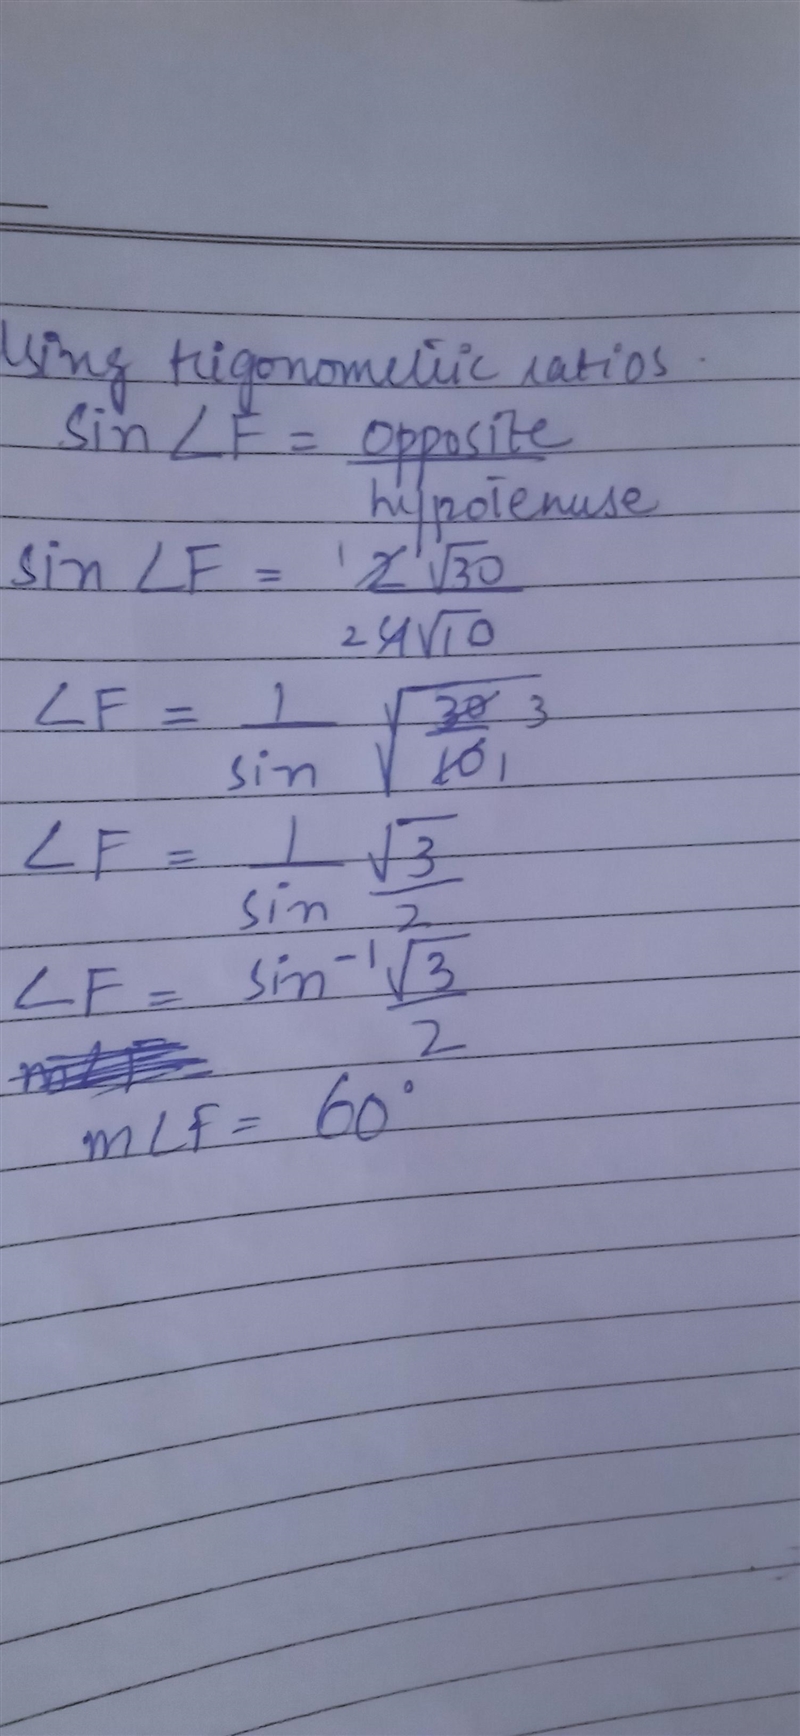 Using trigonometric ratios.
sin ∠F = opposite
hypotenuse
sin ∠F = 1 2√30
2 4√10
∠F = 1/sin √(30/10) 3 1
∠F = 1/sin √3/2
∠F = sin⁻¹ √3/2
m∠F = 60°